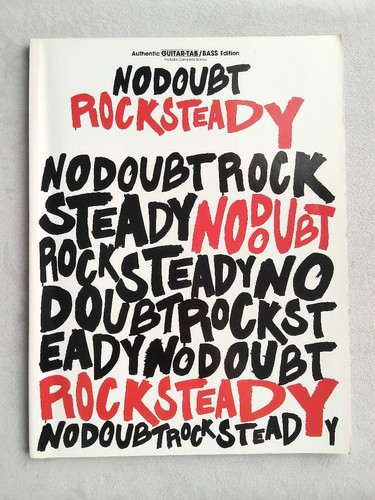 Authentic GUITAR-TAB/BASS Edition
Includes Complete Solos
NO DOUBT
ROCK STEADY
NO DOUBT ROCK
STEADY NO DOUBT
ROCK STEADY NO
DOUBT ROCK ST
EADY NO DOUBT
ROCK STEADY
NO DOUBT ROCK STEADY Y